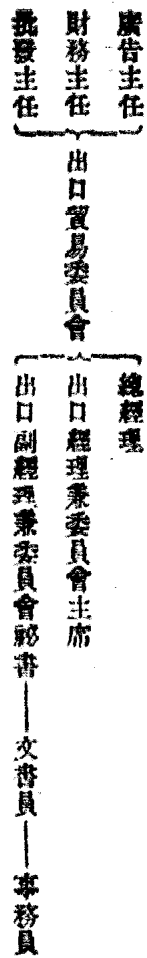 廣告主任
財務主任
批發主任
出口貿易委員會
總經理
出口經理兼委員會主席
出口副經理兼委員會祕書——文書員——事務員